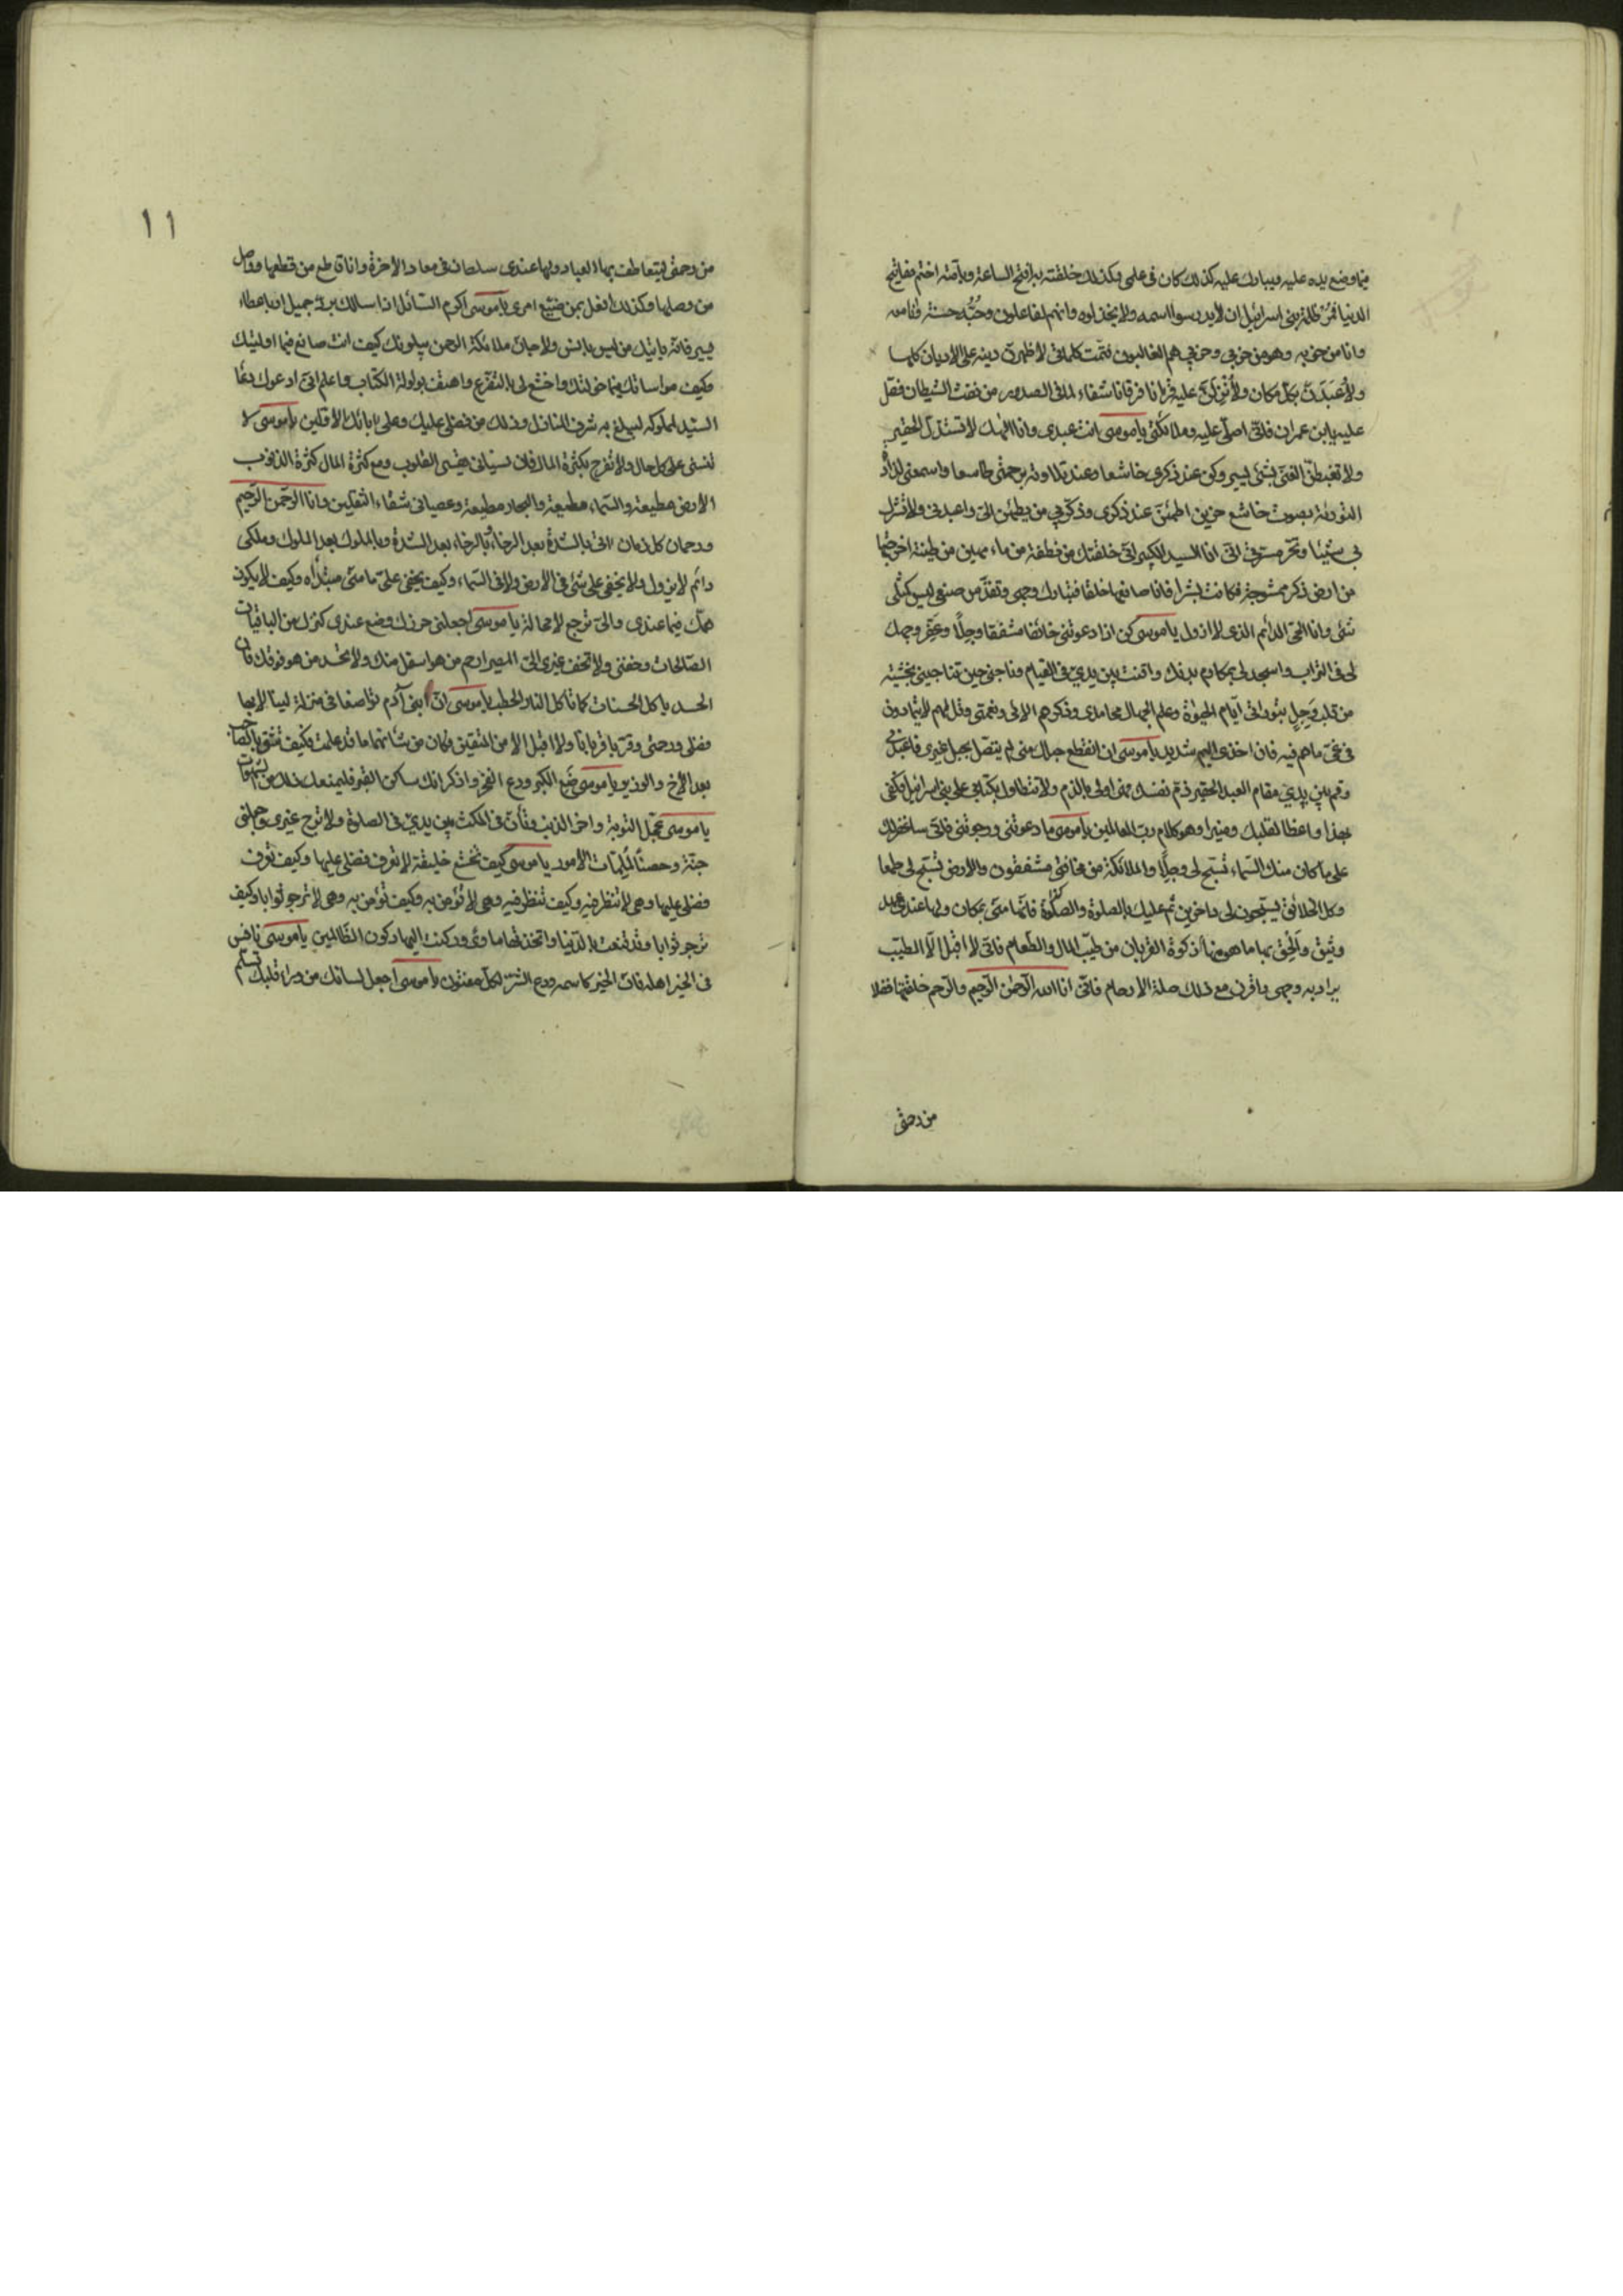 فيما وضع يده عليه ويبارك عليه كذلك كان في علمي وكذلك خلقته به افتح الساعة وبامته اختم مفاتيح
الدنيا فمر ظلمة بني اسرائيل ان لا يدرسوا اسمه ولا يخذلوه وانهم لفاعلون وحبه حسنة فانا معه
وانا من حزبه وهو من حزبي وحزبي هم الغالبون فتمت كلماتي لاظهرن دينه على الاديان كلها
ولاعبدن بكل مكان ولانزلن عليه قرانا فرقانا شفاء لما في الصدور من نفث الشيطان فصل
عليه يا بن عمران فاني اصلي عليه وملائكتي ياموسى انت عبدي وانا الهك لا تستذل الحقير
ولا تغبطن الغني بشئ يسير وكن عند ذكري خاشعا وعند تلاوته برحمتي طامعا واسمعني لذاذة
التورية بصوت خاشع حزين اطمئن عند ذكري وذكر بي من يطمئن الي واعبدني ولا تشرك
بي شيئا وتحر مسرتي اني انا السيد الكبير اني خلقتك من نطفة من ماء مهين من طينة اخرجتها
من ارض ذكر ممشوجة فكانت بشرا فانا صانعها خلقا فتبارك وجهي وتقدس صنعي ليس كمثلي
شئ وانا الحي الدائم الذي لا ازول ياموسى كن اذا دعوتني خائفا مشفقا وجلا وعفر وجهك
لي في التراب واسجد لي بمكارم بدنك واقنت بين يدي في القيام وناجني حين تناجيني بخشية
من قلب وجل بتوراتي ايام الحيوة وعلم الجهال محامدي وذكرهم الائي ونعمتي وقل لهم لا يتمادون
في غي ما هم فيه فان اخذي اليم شديد ياموسى ان انقطع حبلك مني لم يتصل بحبل غيري فاعبدني
وقم بين يدي مقام العبد الحقير ذم نفسك فهي اولى بالذم ولا تتطاول بكتابي على بني اسرائيل فكفى
بهذا واعظا لقلبك ومنيرا وهو كلام رب العالمين ياموسى ما دعوتني ورجوتني فاني ساغفر لك
على ما كان منك السماء تسبح لي وجلا والملائكة من مخافتي مشفقون والارض تسبح لي طمعا
وكل الخلائق يسبحون لي داخرين ثم عليك بالصلوة والصلوة فانها مني بمكان ولها عندي عهد
وثيق والحق بها ما هو منها ذكوة القربان من طيب المال والطعام فاني لا اقبل الا الطيب
يراد به وجهي واقرن مع ذلك صلة الارحام فاني انا الله الرحمن الرحيم والرحم خلقتها فضلا
من رحمتي
١١
من رحمتي ليتعاطف بها العباد ولها عندي سلطان في معاد الاخرة وانا قاطع من قطعها وواصل
من وصلها وكذلك افعل بمن ضيع امري ياموسى اكرم السائل اذا سالك برد جميل او باعطاء
يسير فانه ياتيك من ليس بانس ولا جان ملائكة الرحمن يبلونك كيف انت صانع فيما اوليتك
وكيف مواساتك فيما خولتك واخشع لي بالتضرع واهتف بولولة الكتاب واعلم اني ادعوك دعاء
السيد لمملوكه ليبلغ به شرف المنازل وذلك من فضلي عليك وعلى ابائك الاولين ياموسى لا
تنسني على كل حال ولا تفرح بكثرة المال فان نسياني يقسى القلوب ومع كثرة المال كثرة الذنوب
الارض مطيعة والسماء مطيعة والبحار مطيعة وعصياني شقاء الثقلين وانا الرحمن الرحيم
ورحمان كل زمان اتي بالشدة بعد الرخاء وبالرخاء بعد الشدة وبالملوك بعد الملوك وملكي
دائم لا يزول ولا يخفى علي شئ في الارض ولا في السماء وكيف يخفى علي ما مني مبتداه وكيف لا يكون
همك فيما عندي والي ترجع لا محالة ياموسى اجعلني حرزك وضع عندي كنزك من الباقيات
الصالحات وخفني ولا تخف غيري الي المصير ارحم من هو اسفل منك ولا تحسد من هو فوقك فان
الحسد ياكل الحسنات كما تاكل النار الحطب ياموسى ان ابني آدم تواضعا في منزلة لينالا بها
فضلي ورحمتي وقربا قربانا ولا اقبل الا من المتقين فكان من شانهما ما قد علمت فكيف تثق بالصاحب
بعد الاخ والوزير ياموسى ضع الكبر ودع الفخر واذكر انك ساكن القبر فليمنعك ذلك من الشهوات
ياموسى عجل التوبة واخر الذنب وتأن في المكث بين يدي في الصلوة ولا ترج غيري وجعلني
جنة وحصنا لملمات الامور ياموسى كيف تخشع خليقة لا تعرف فضلي عليها وكيف تعرف
فضلي عليها وهي لا تنظر فيه وكيف تنظر فيه وهي لا تؤمن به وكيف تؤمن به وهي لا ترجو ثوابا وكيف
ترجو ثوابا وقد قنعت بالدنيا واتخذتها ماوى وركنت اليها ركون الظالمين ياموسى نافس
في الخير اهله فان الخير كاسمه ودع الشر لكل مفتون ياموسى اجعل لسانك من وراء قلبك تسلم